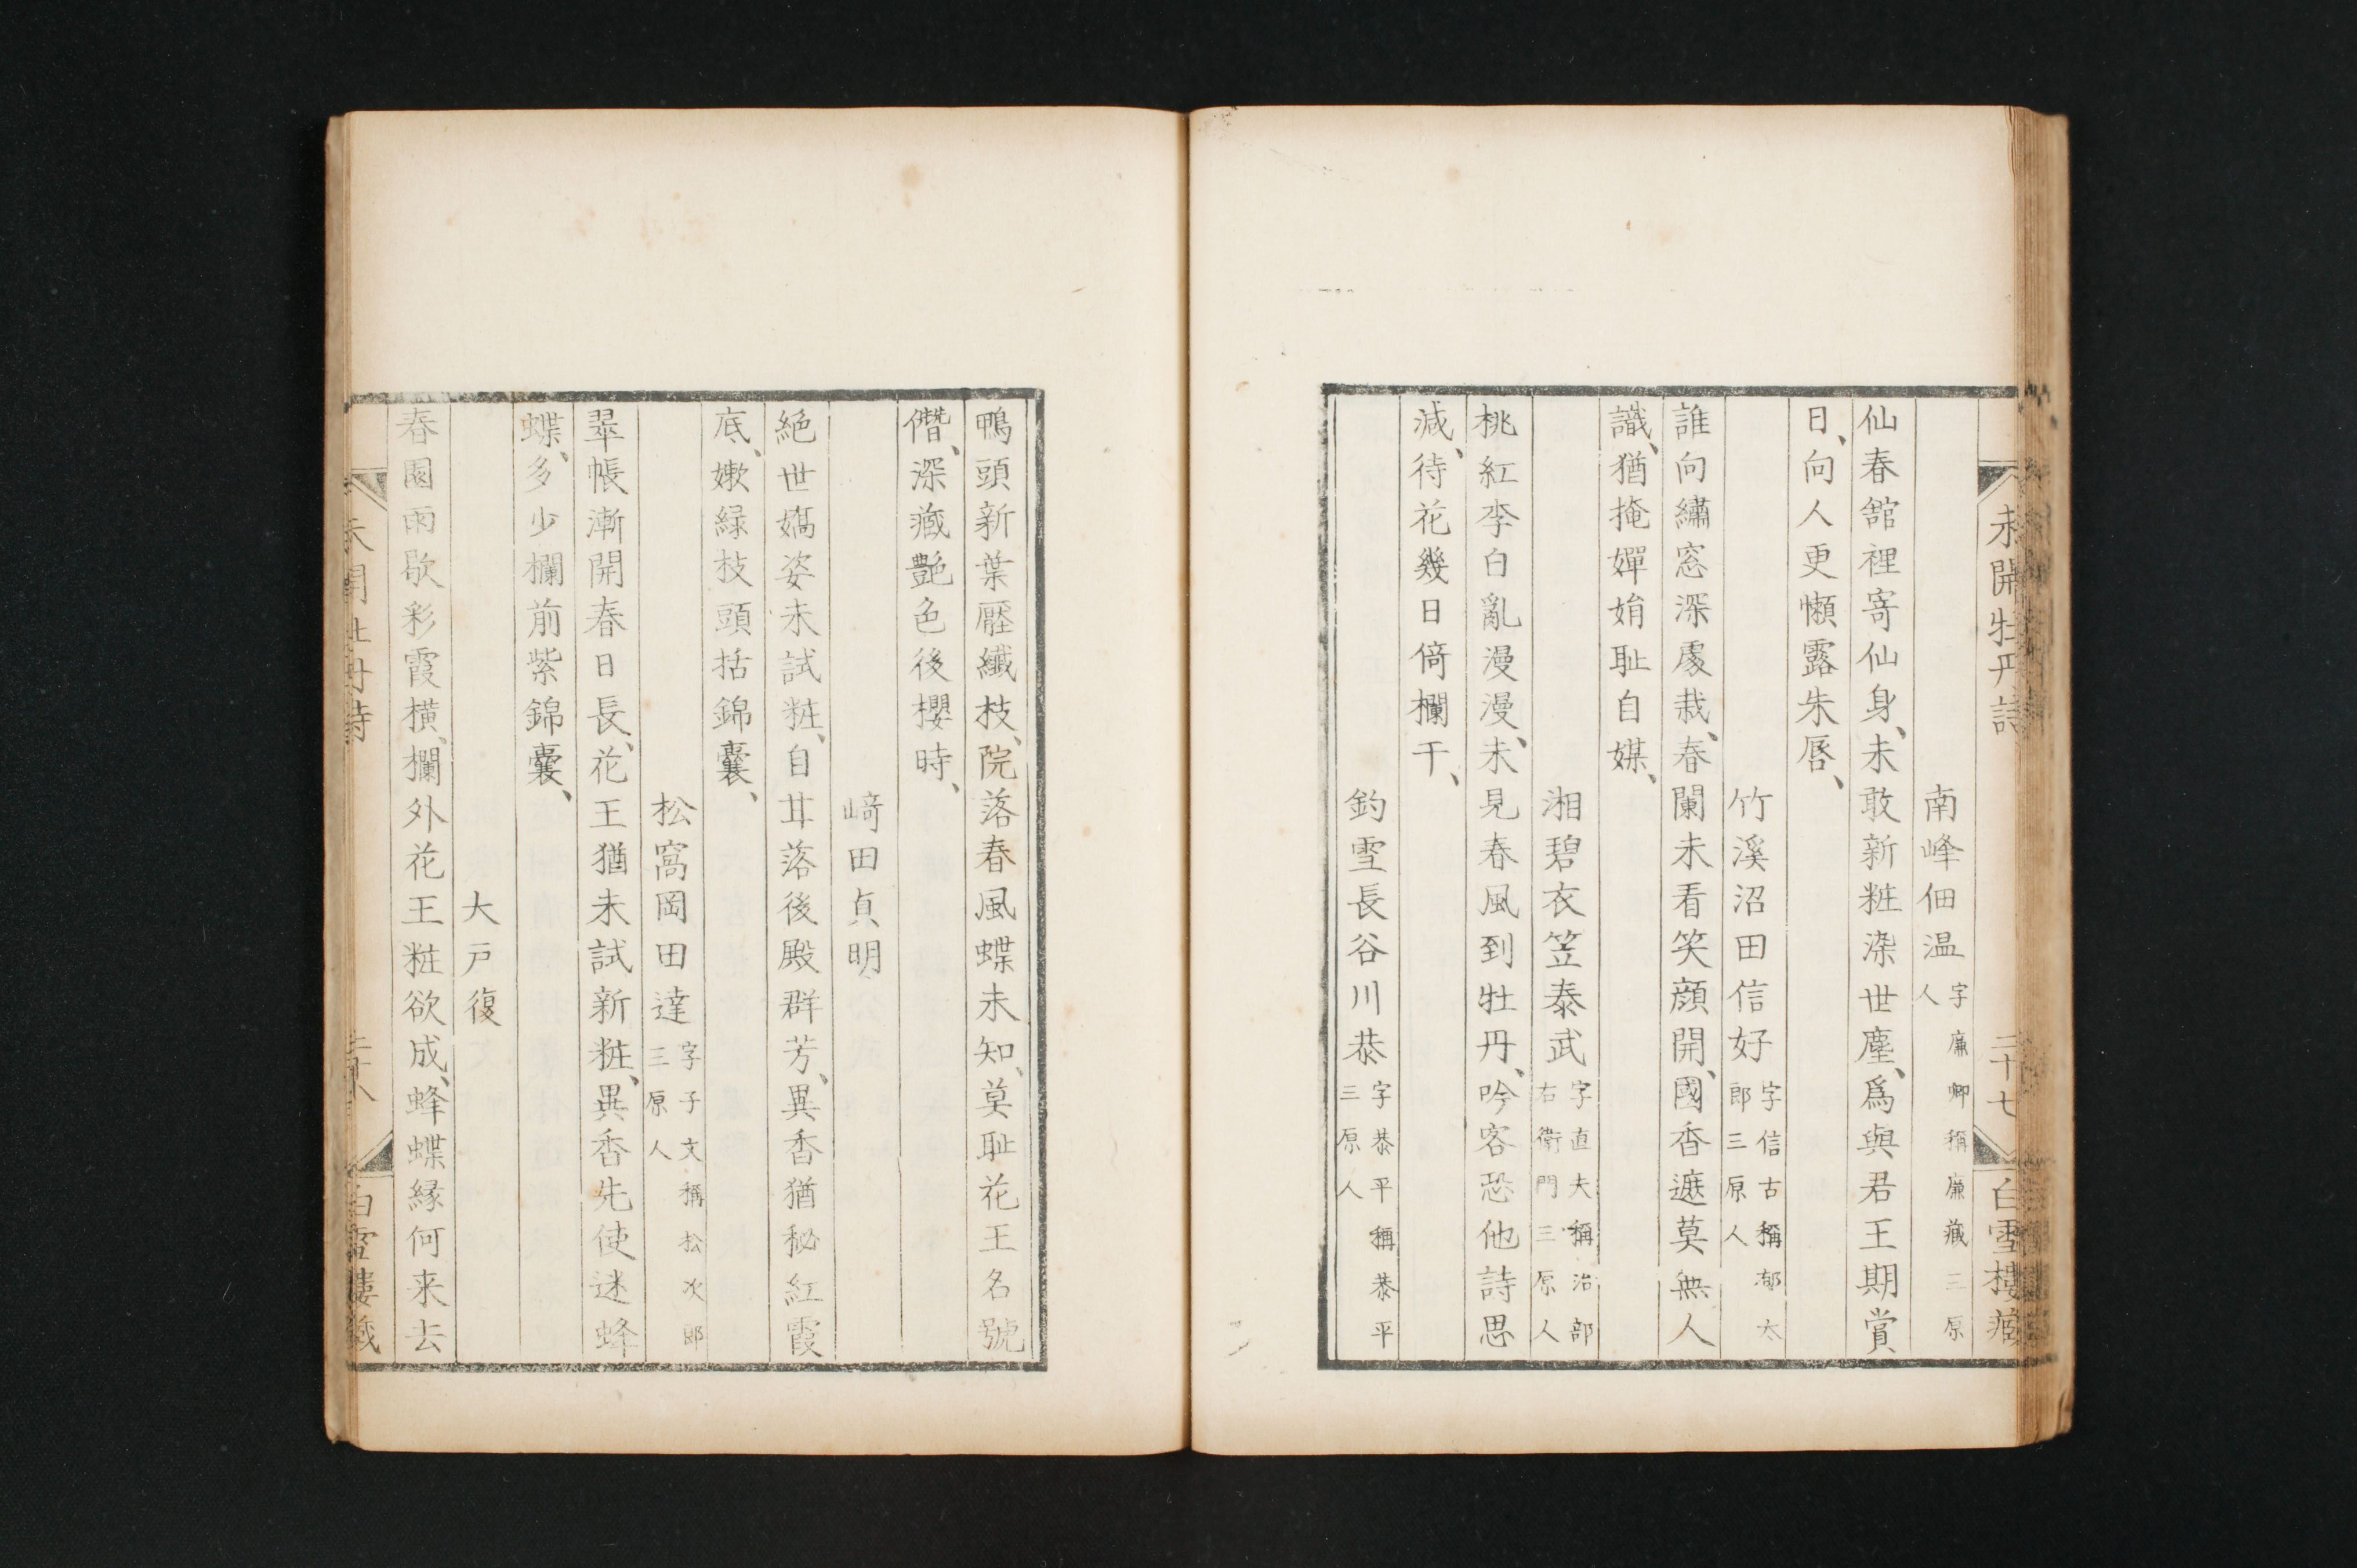 未開牡丹詩 二十七 白雪樓藏
南峰佃温 字廉卿稱廉藏三原人
仙春舘裡寄仙身、未敢新粧染世塵、爲與君王期賞
日、向人更懶露朱唇、
竹溪沼田信好 字信古稱郁太郎三原人
誰向繡窓深處栽、春闌未看笑顔開、國香遮莫無人
識、猶掩嬋娟耻自媒、
湘碧衣笠泰武 字直夫稱治部右衛門三原人
桃紅李白亂漫漫、未見春風到牡丹、吟客恐他詩思
減、待花幾日倚欄干、
釣雪長谷川恭 字恭平稱恭平三原人
鴨頭新葉壓纖枝、院落春風蝶未知、莫耻花王名號
僭、深藏艷色後櫻時、
﨑田貞明
絶世嬌姿未試粧、自甘落後殿群芳、異香猶秘紅霞
底、嫩緑枝頭括錦囊、
松窩岡田達 字子文稱松次郎三原人
翠帳漸開春日長、花王猶未試新粧、異香先使迷蜂
蝶、多少欄前紫錦囊、
大戸復
春園雨歇彩霞横、欄外花王粧欲成、蜂蝶縁何来去
未開牡丹詩 二十八 白雪樓藏